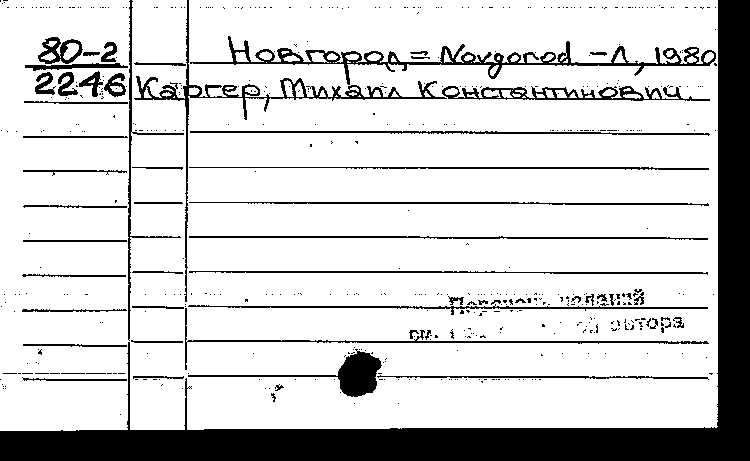 80-2
2246
Новгород = Novgorod. – Л., 1980
Каргер, Михаил Константинович.
Перечень изданий
см. автора